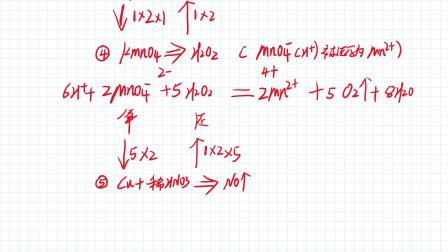 ↓1×2×1 ↑1×2
④ KMnO4 ⇒ H2O2 ( MnO4⁻ (H⁺) 被还原为 Mn²⁺)
2- 4+
6H⁺ + 2MnO4⁻ + 5H2O2 = 2Mn²⁺ + 5O2↑ + 8H2O
↓5×2 ↑1×2×5
⑤ Cu + 稀HNO3 ⇒ NO↑